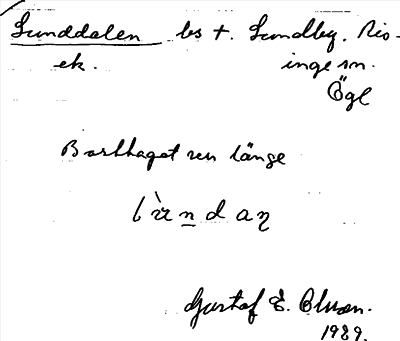 Lunddalen bs t. Lundby. Ris-
ek. inge sn.
Ögl
Borttaget sen länge
Gustaf E. Olsson.
1989.